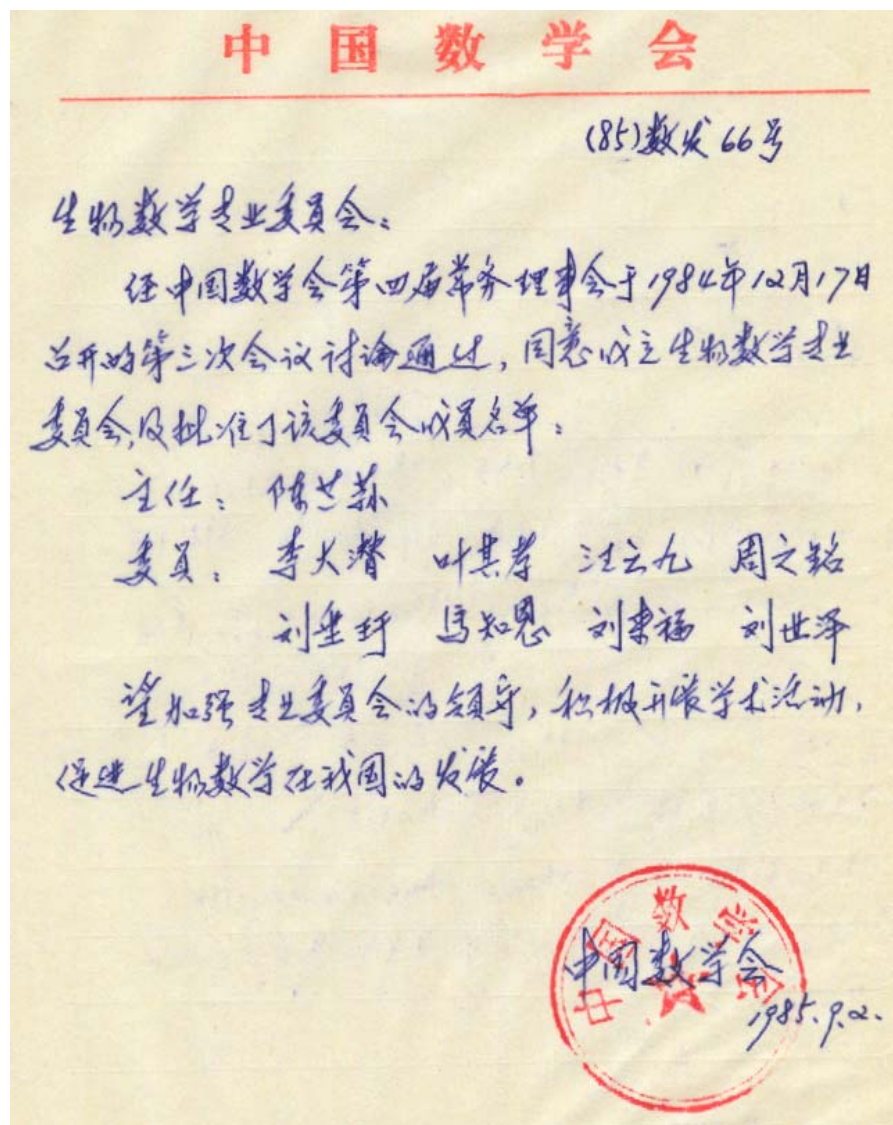 中国数学会
(85)数发66号
生物数学专业委员会:
经中国数学会第四届常务理事会于1984年12月17日
召开的第三次会议讨论通过,同意成立生物数学专业
委员会,及批准了该委员会成员名单:
主任: 陈兰荪
委员: 李大潜 叶其孝 汪云九 周之铭
刘垂玗 马知恩 刘来福 刘世泽
望加强专业委员会的领导,积极开展学术活动,
促进生物数学在我国的发展。
中国数学会
中国数学会
1985.9.2.